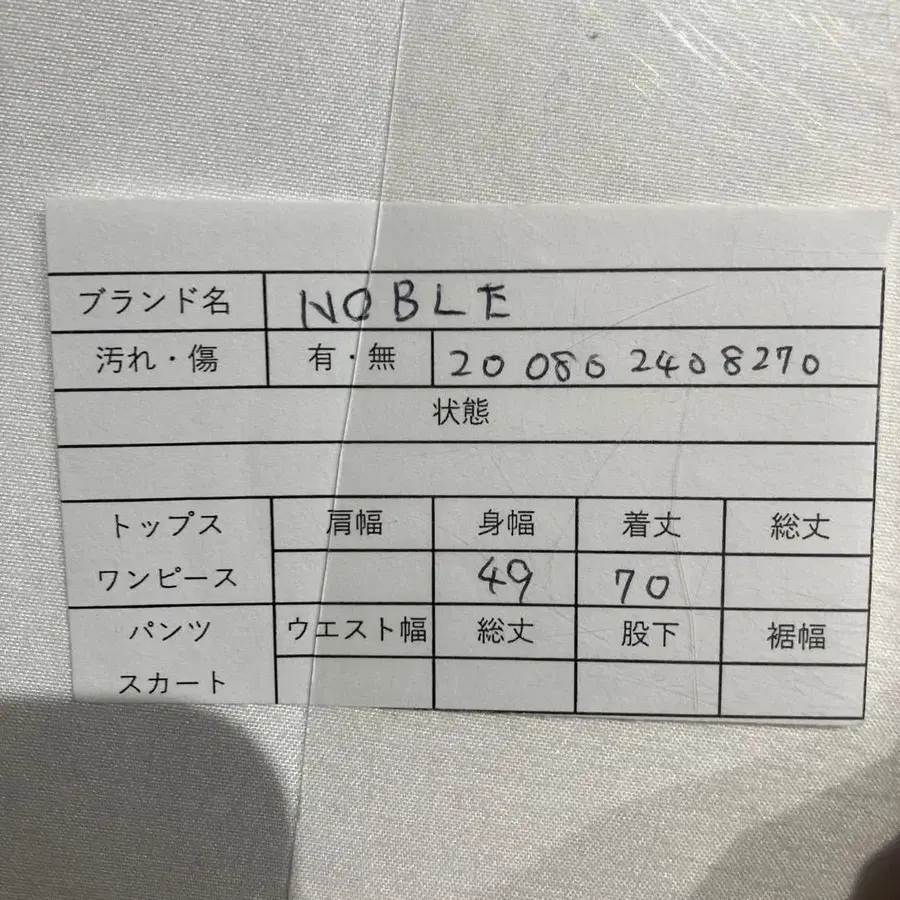 ブランド名 NOBLE
汚れ・傷 有・無 20 080 2408270
状態
トップス 肩幅 身幅 着丈 総丈
ワンピース 49 70
パンツ ウエスト幅 総丈 股下 裾幅
スカート